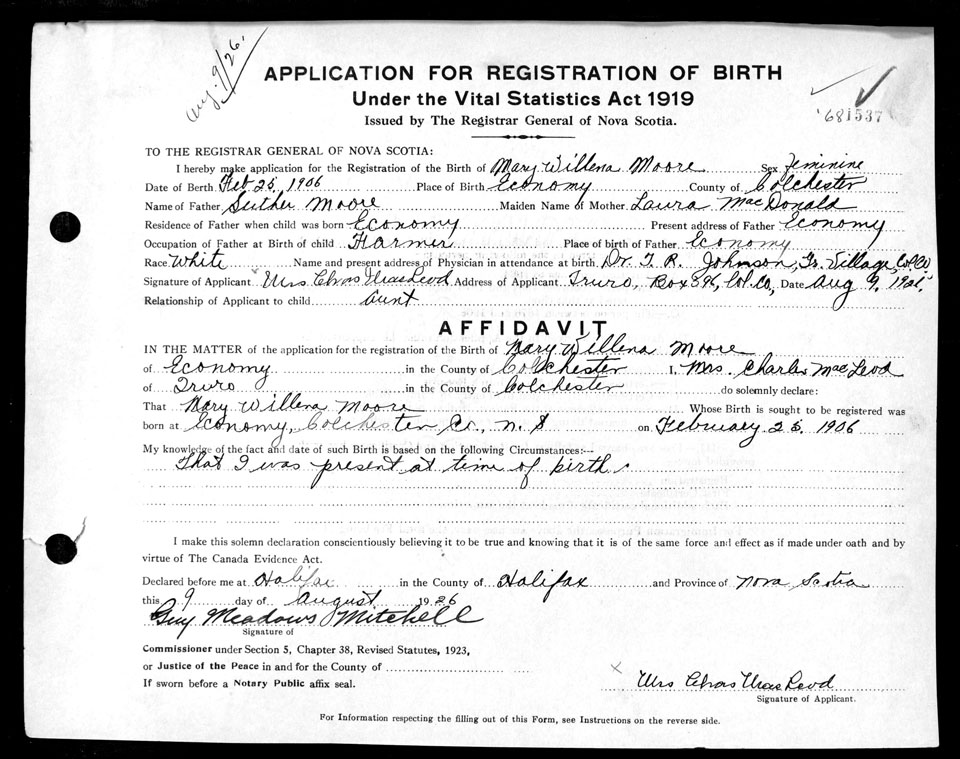 Aug. 9/26.
APPLICATION FOR REGISTRATION OF BIRTH
Under the Vital Statistics Act 1919
Issued by The Registrar General of Nova Scotia.
681537
TO THE REGISTRAR GENERAL OF NOVA SCOTIA:
I hereby make application for the Registration of the Birth of Mary Willena Moore Sex Feminine
Date of Berth Feb 25, 1906 Place of Birth Economy County of Colchester
Name of Father Luther Moore Maiden Name of Mother Laura MacDonald
Residence of Father when child was born Economy Present address of Father Economy
Occupation of Father at Birth of child Farmer Place of birth of Father Economy
Race White Name and present address of Physician in attendance at birth Dr. T. R. Johnson, Gr. Village, Col. Co
Signature of Applicant Mrs Chas MacLeod Address of Applicant Truro, Box 596, Col. Co, Date Aug 9, 1926.
Relationship of Applicant to child aunt
AFFIDAVIT
IN THE MATTER of the application for the registration of the Birth of Mary Willena Moore
of Economy in the County of Colchester I, Mrs. Charles MacLeod
of Truro in the County of Colchester do solemnly declare:
That Mary Willena Moore Whose Birth is sought to be registered was
born at Economy, Colchester Co., N. S on February 25, 1906
My knowledge of the fact and date of such Birth is based on the following Circumstances:—
That I was present at time of birth.
I make this solemn declaration conscientiously believing it to be true and knowing that it is of the same force and effect as if made under oath and by
virtue of The Canada Evidence Act.
Declared before me at Halifax in the County of Halifax and Province of Nova Scotia
this 9 day of August 1926
Guy Meadows Mitchell
Signature of
Commissioner under Section 5, Chapter 38, Revised Statutes, 1923,
or Justice of the Peace in and for the County of
If sworn before a Notary Public affix seal.
x Mrs Chas MacLeod
Signature of Applicant.
For Information respecting the filling out of this Form, see Instructions on the reverse side.